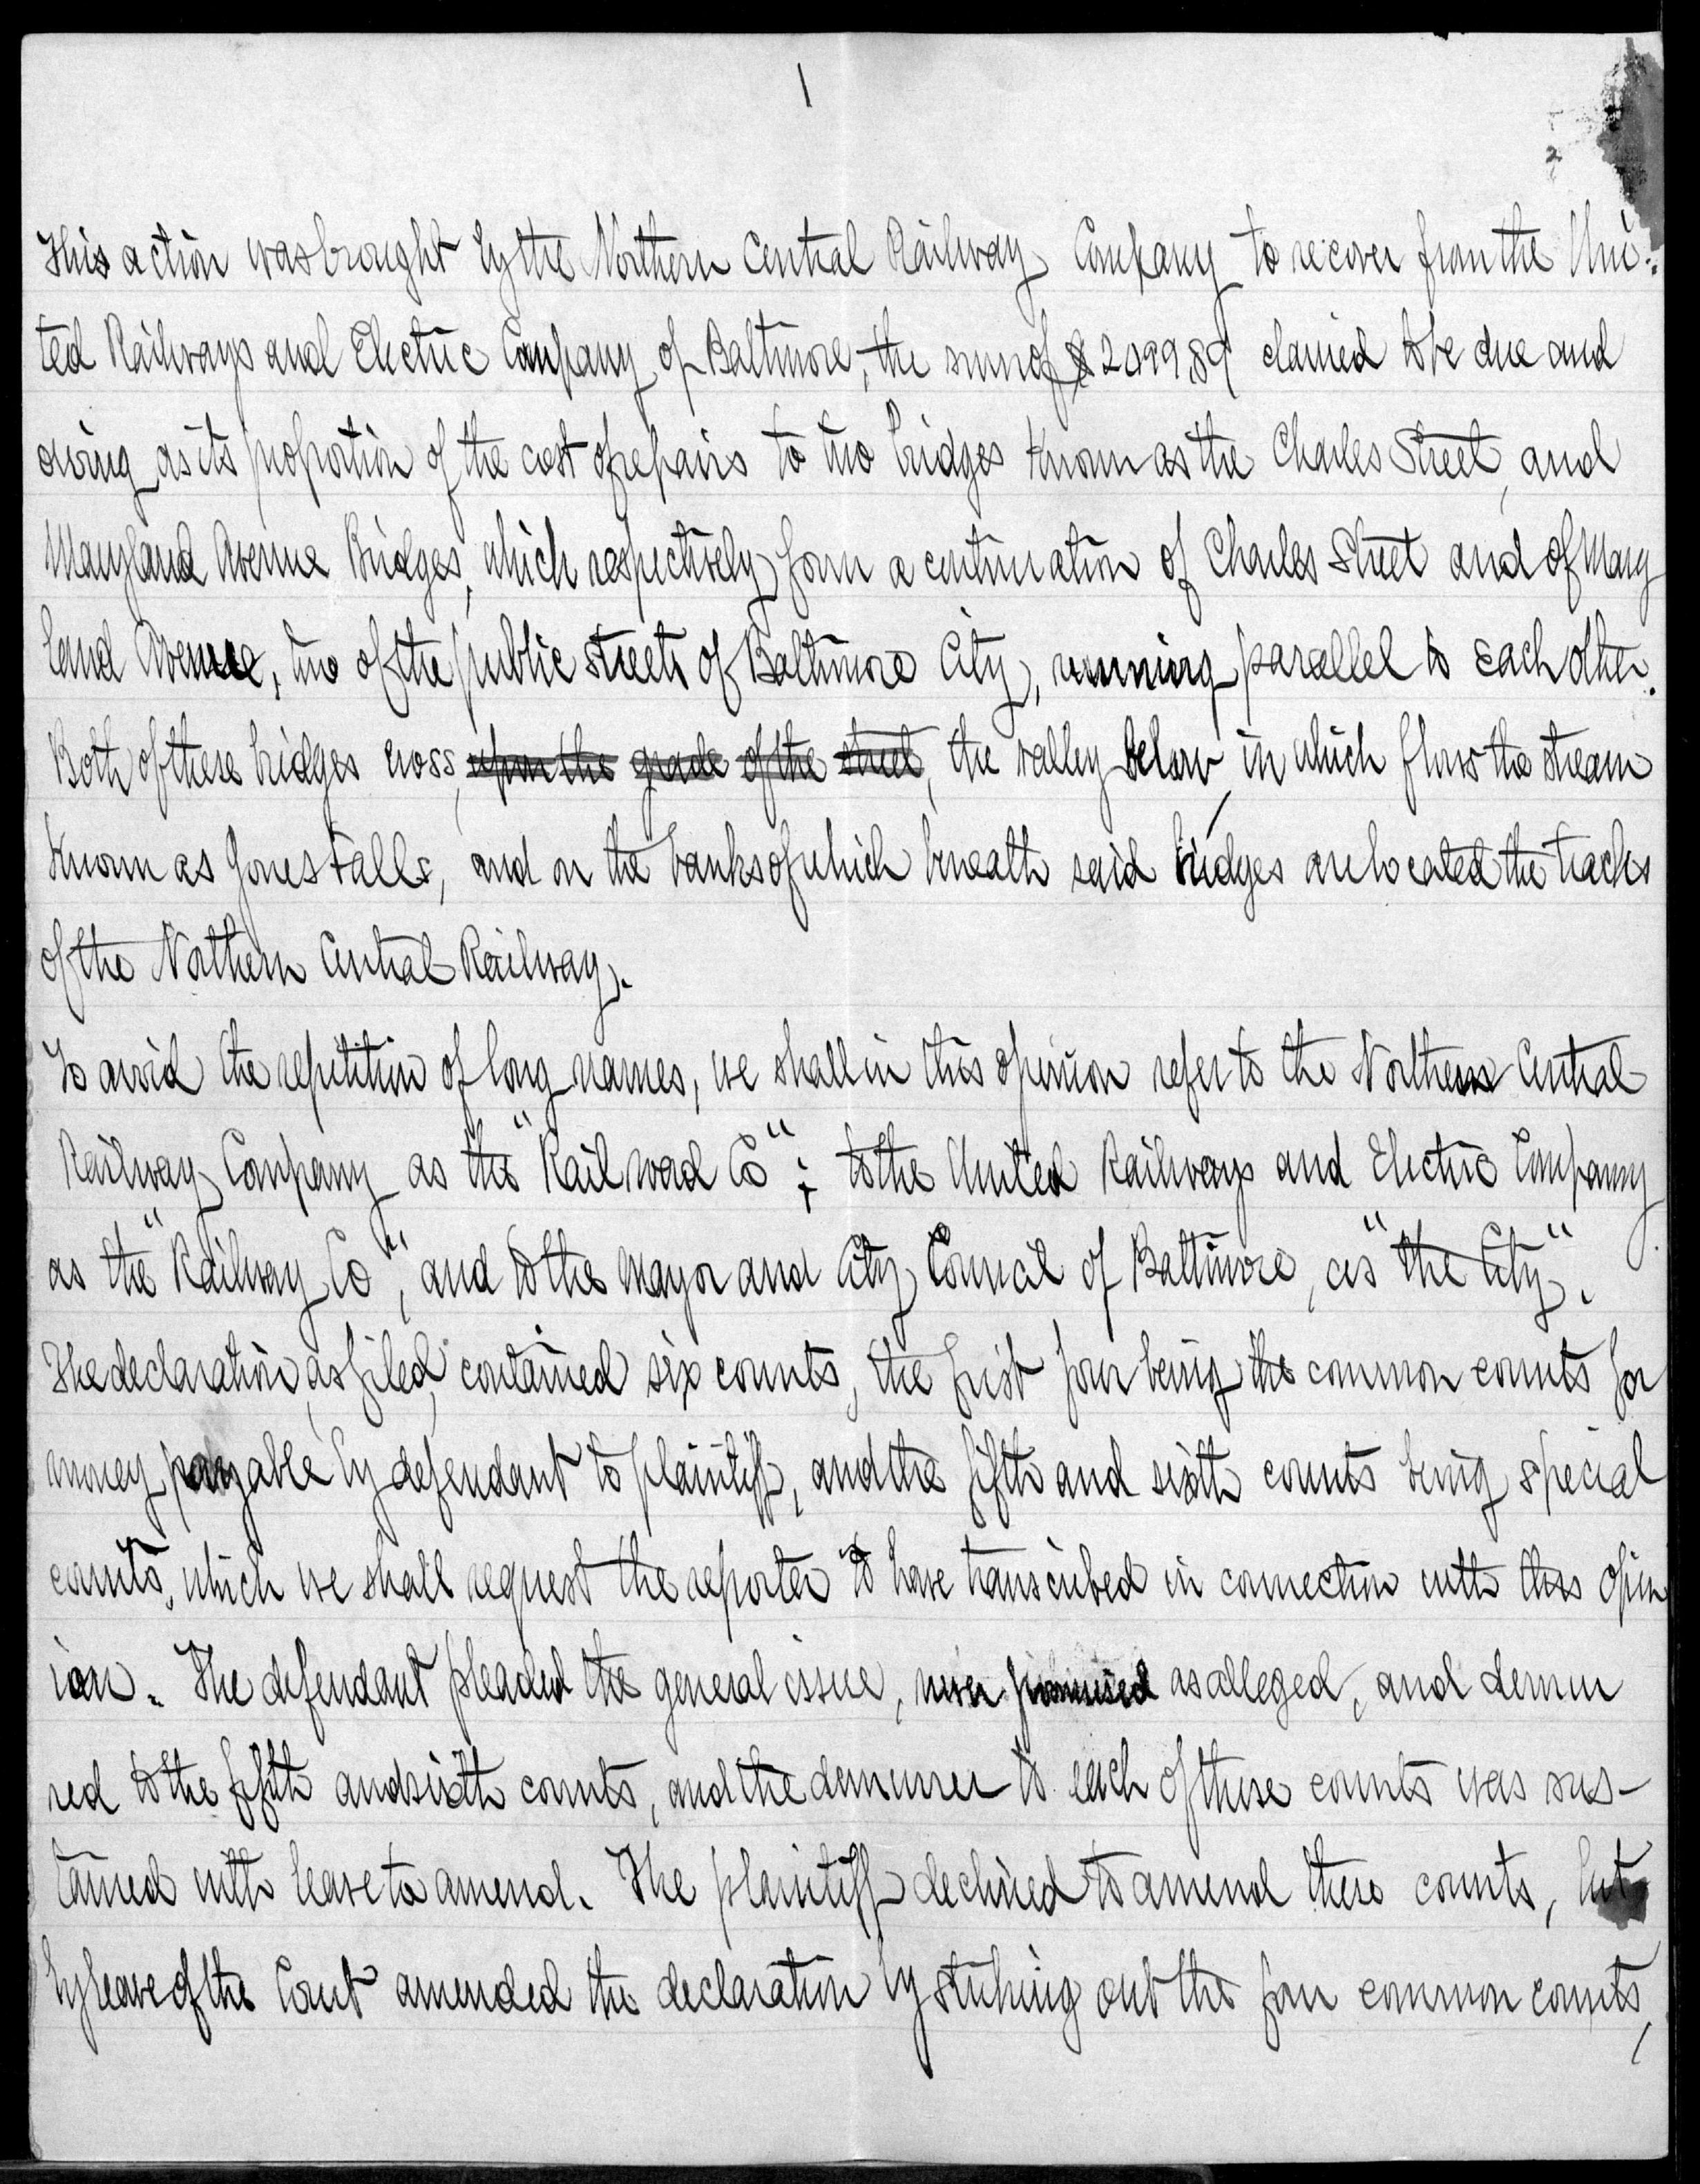 1
This action was brought by the Northern Central Railway Company to recover from the Uni-
ted Railways and Electric Company of Baltimore, the sum of $2099.89 claimed to be due and
owing as its proportion of the cost of repairs to two bridges known as the Charles Street, and
Maryland Avenue Bridges, which respectively form a continuation of Charles Street and of Mary
land Avenue, two of the public streets of Baltimore City, running parallel to each other.
Both of these bridges cross, upon the grade of the street, the valley below, in which flows the stream
known as Jones Falls, and on the banks of which beneath said bridges are located the tracks
of the Northern Central Railway.
To avoid the repetition of long names, we shall in this opinion refer to the Northern Central
Railway Company as the "Railroad Co"; to the United Railways and Electric Company
as the "Railway Co", and to the Mayor and City Council of Baltimore, as "the City".
The declaration, as filed, contained six counts, the first four being the common counts for
money payable by defendant to plaintiff, and the fifth and sixth counts being special
counts, which we shall request the reporter to have transcribed in connection with this opin
ion. The defendant pleaded the general issue, never promised as alleged, and demur
red to the fifth and sixth counts, and the demurrer to each of these counts was sus-
tained with leave to amend. The plaintiff declined to amend these counts, but
by leave of the Court amended the declaration by striking out the four common counts,